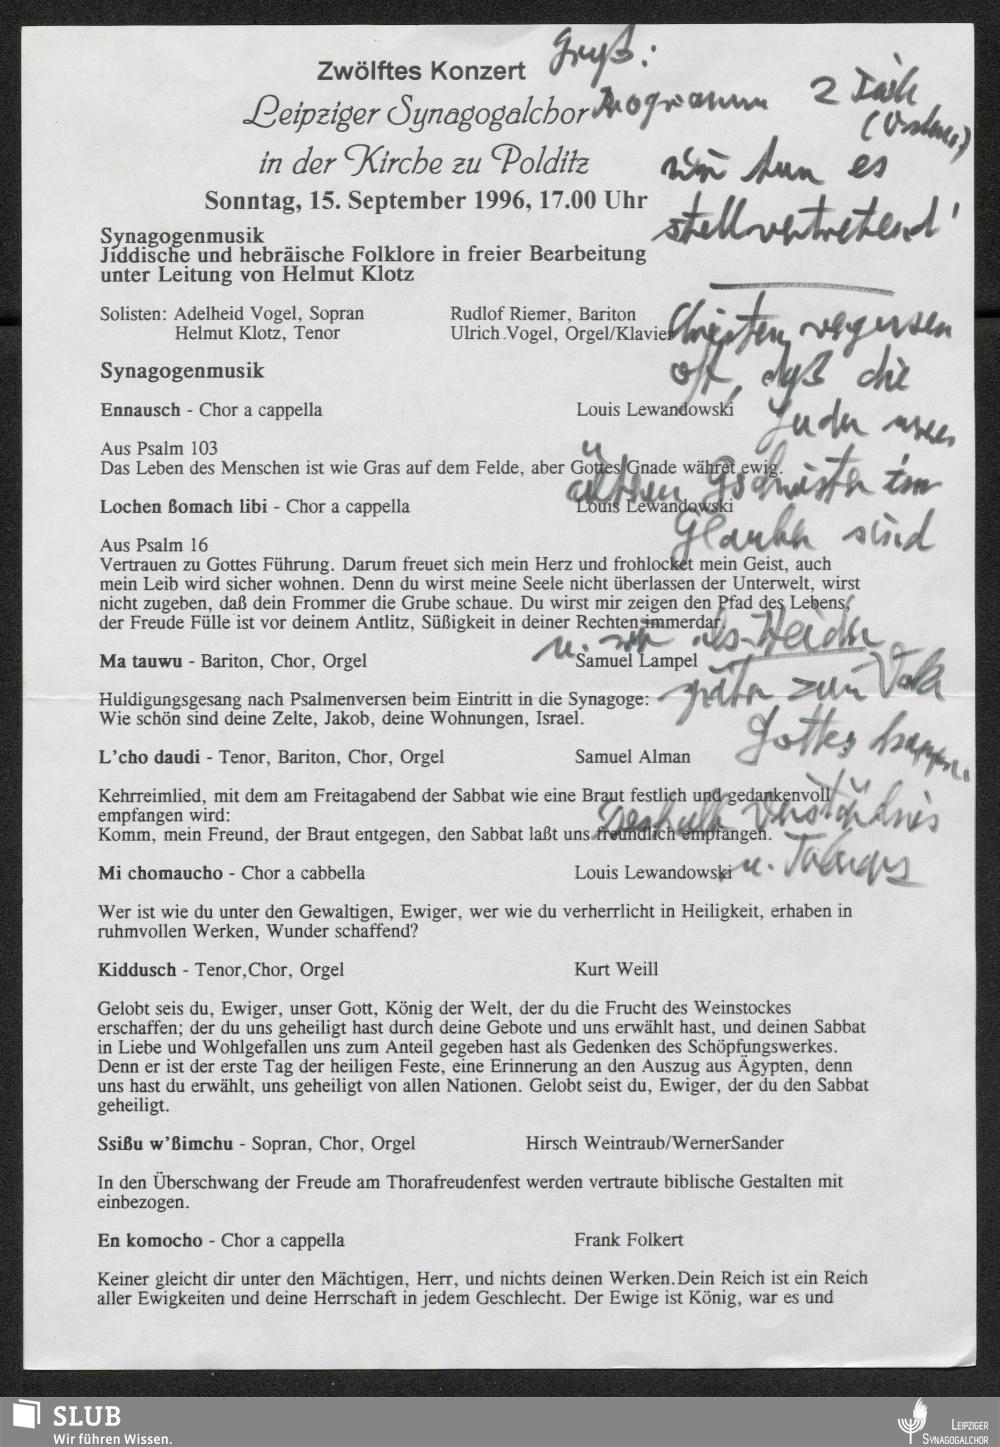 Zwölftes Konzert
Gruß:
Leipziger Synagogalchor
Programm 2 
in der Kirche zu Polditz
wir tun es
Sonntag, 15. September 1996, 17.00 Uhr
stellvertretend!
Synagogenmusik
Jiddische und hebräische Folklore in freier Bearbeitung
unter Leitung von Helmut Klotz
Solisten: Adelheid Vogel, Sopran Rudlof Riemer, Bariton
Helmut Klotz, Tenor Ulrich Vogel, Orgel/Klavier
Christen vergessen
oft, daß die
Juden unsere
älteren Geschwister im
Glauben sind
u. wir als Heiden
später zum Volk
Gottes kamen.
Deshalb Verständnis
u.
Synagogenmusik
Ennausch - Chor a cappella Louis Lewandowski
Aus Psalm 103
Das Leben des Menschen ist wie Gras auf dem Felde, aber Gottes Gnade währet ewig.
Lochen ßomach libi - Chor a cappella Louis Lewandowski
Aus Psalm 16
Vertrauen zu Gottes Führung. Darum freuet sich mein Herz und frohlocket mein Geist, auch
mein Leib wird sicher wohnen. Denn du wirst meine Seele nicht überlassen der Unterwelt, wirst
nicht zugeben, daß dein Frommer die Grube schaue. Du wirst mir zeigen den Pfad des Lebens,
der Freude Fülle ist vor deinem Antlitz, Süßigkeit in deiner Rechten immerdar.
Ma tauwu - Bariton, Chor, Orgel Samuel Lampel
Huldigungsgesang nach Psalmenversen beim Eintritt in die Synagoge:
Wie schön sind deine Zelte, Jakob, deine Wohnungen, Israel.
L'cho daudi - Tenor, Bariton, Chor, Orgel Samuel Alman
Kehrreimlied, mit dem am Freitagabend der Sabbat wie eine Braut festlich und gedankenvoll
empfangen wird:
Komm, mein Freund, der Braut entgegen, den Sabbat laßt uns freundlich empfangen.
Mi chomaucho - Chor a cabbella Louis Lewandowski
Wer ist wie du unter den Gewaltigen, Ewiger, wer wie du verherrlicht in Heiligkeit, erhaben in
ruhmvollen Werken, Wunder schaffend?
Kiddusch - Tenor,Chor, Orgel Kurt Weill
Gelobt seis du, Ewiger, unser Gott, König der Welt, der du die Frucht des Weinstockes
erschaffen; der du uns geheiligt hast durch deine Gebote und uns erwählt hast, und deinen Sabbat
in Liebe und Wohlgefallen uns zum Anteil gegeben hast als Gedenken des Schöpfungswerkes.
Denn er ist der erste Tag der heiligen Feste, eine Erinnerung an den Auszug aus Ägypten, denn
uns hast du erwählt, uns geheiligt von allen Nationen. Gelobt seist du, Ewiger, der du den Sabbat
geheiligt.
Ssißu w'ßimchu - Sopran, Chor, Orgel Hirsch Weintraub/WernerSander
In den Überschwang der Freude am Thorafreudenfest werden vertraute biblische Gestalten mit
einbezogen.
En komocho - Chor a cappella Frank Folkert
Keiner gleicht dir unter den Mächtigen, Herr, und nichts deinen Werken.Dein Reich ist ein Reich
aller Ewigkeiten und deine Herrschaft in jedem Geschlecht. Der Ewige ist König, war es und
SLUB
Wir führen Wissen.
Leipziger
Synagogalchor